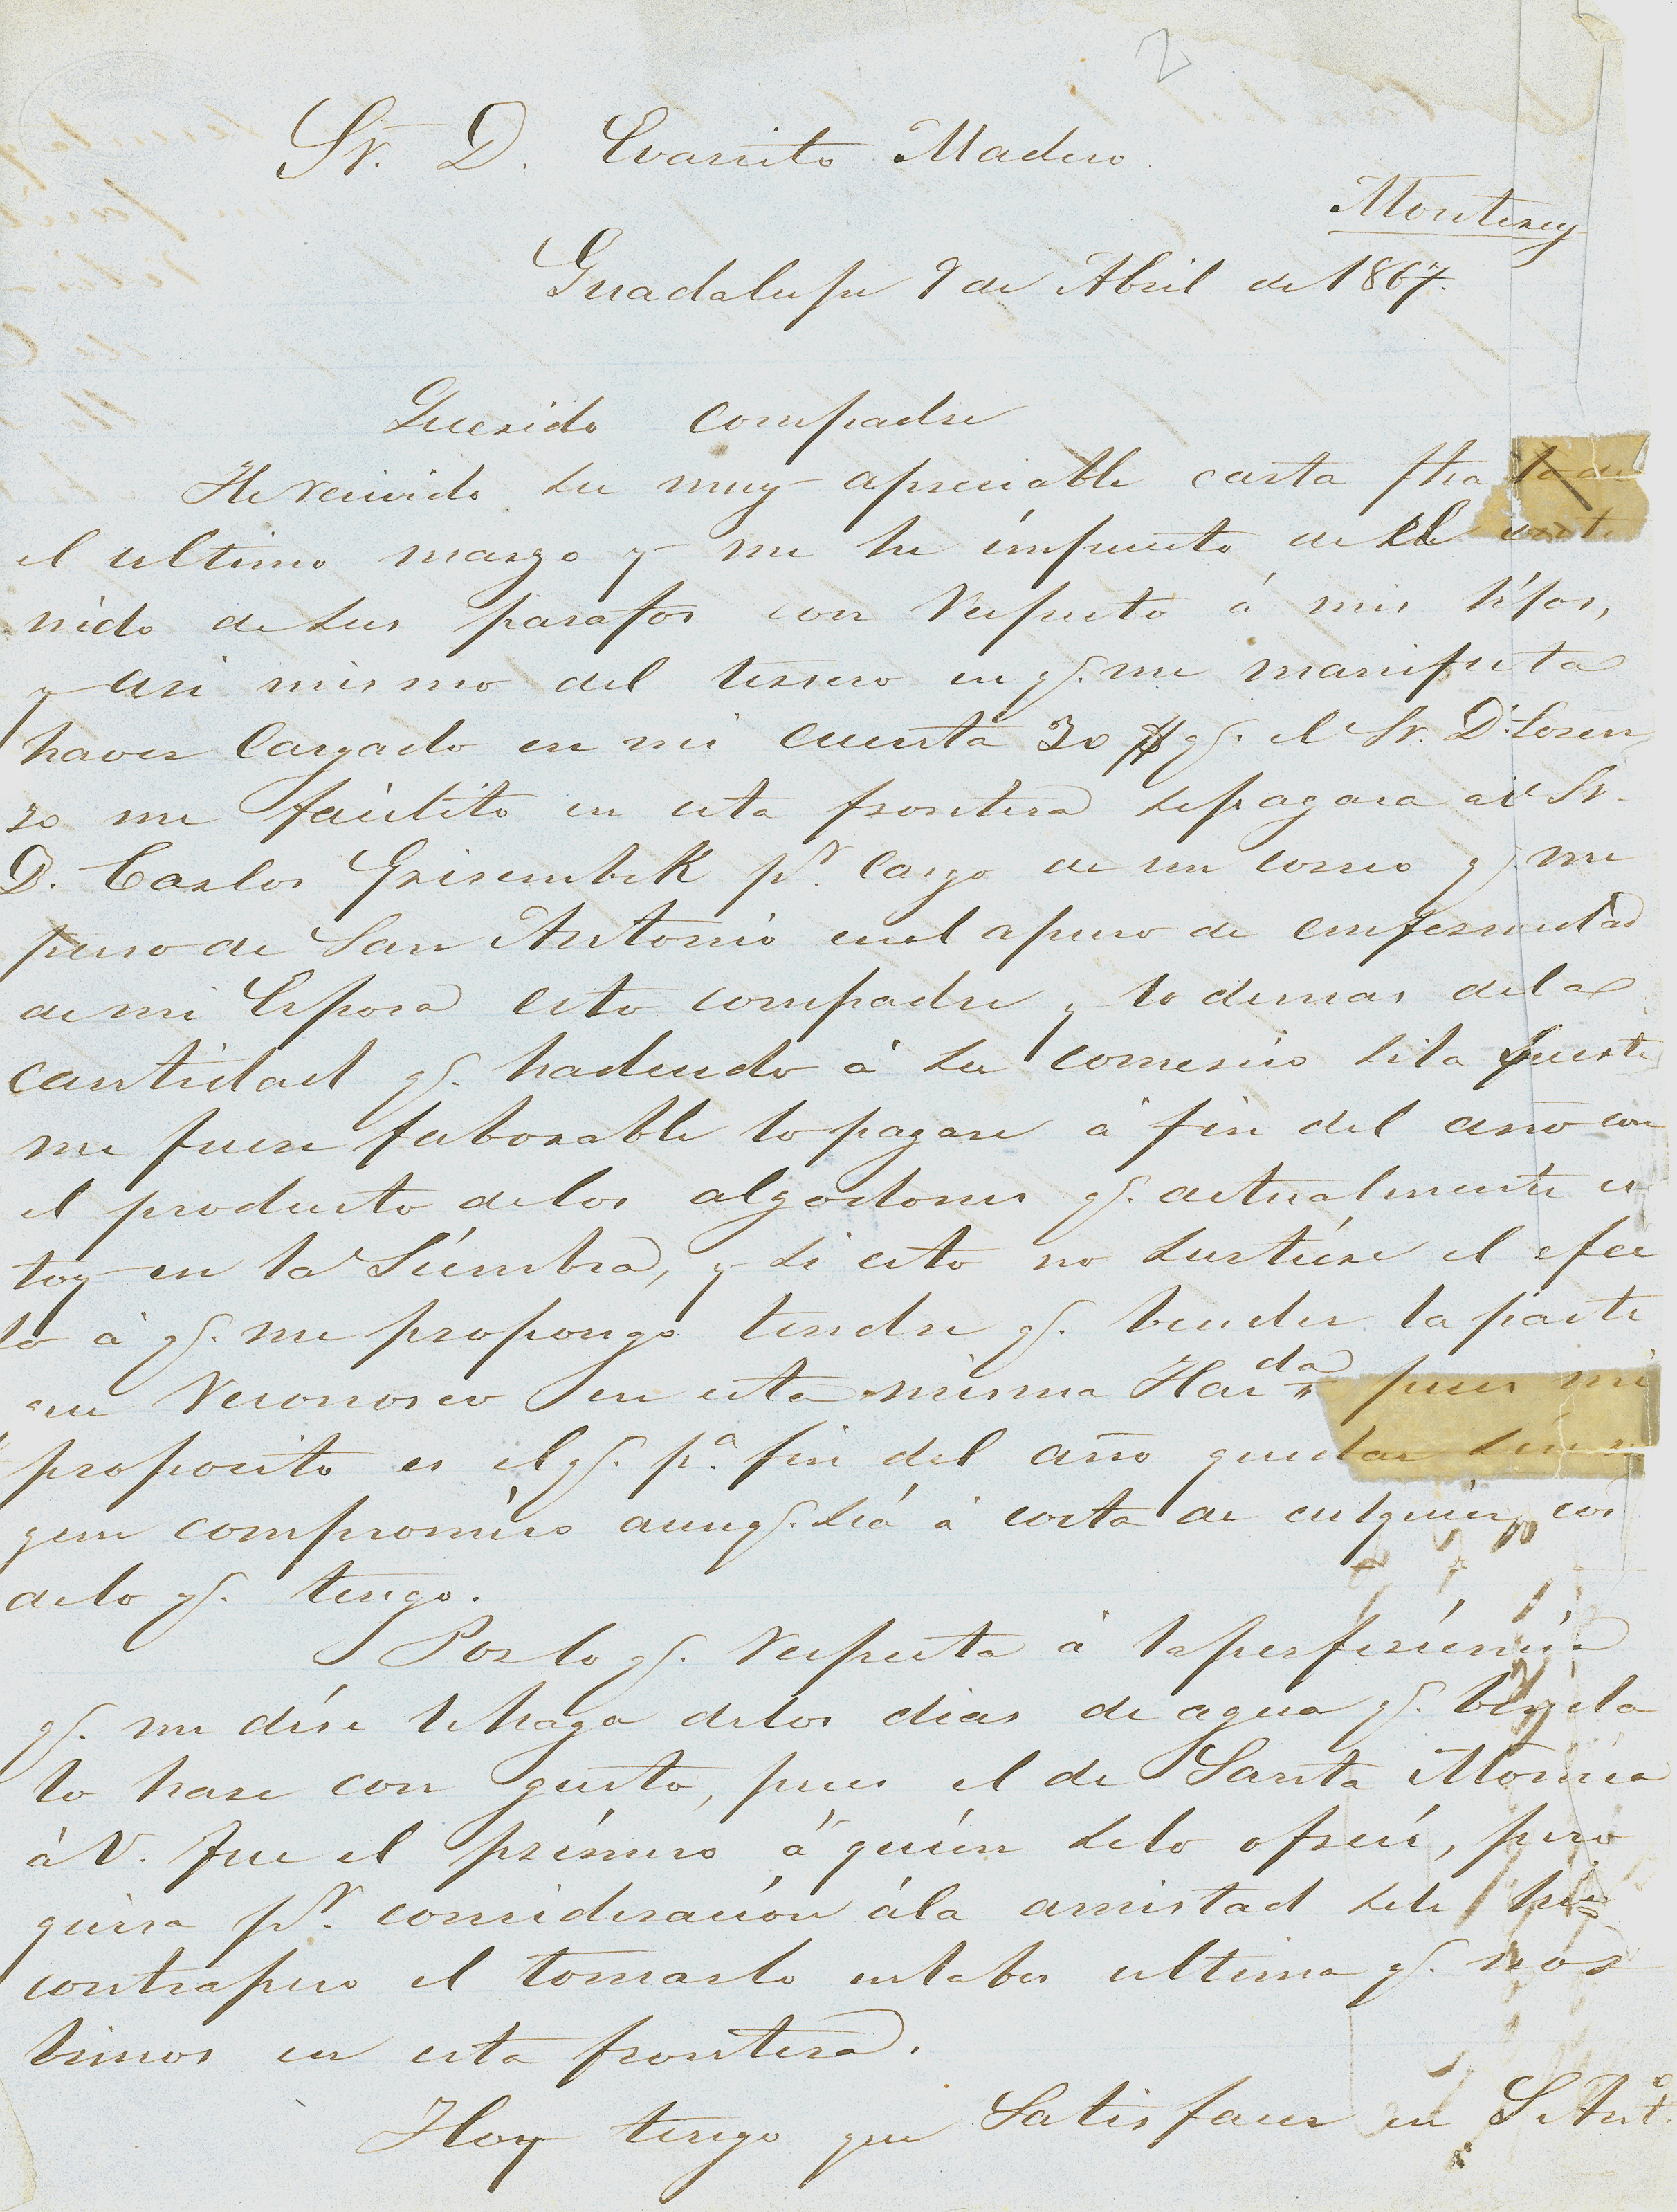 2
Sr. D. Evaristo Madero.
Monterey
Guadalupe 9 de Abril de 1867.
Querido compadre
He recivido su muy apreciable carta fha
el ultimo marzo y me he impuesto de el conte
nido de sus parafos con respecto á mis hijos,
y asi mismo del tersero en q. me manifiesta
haver cargado en mi cuenta 30 $ q. el Sr. D. Loren
zo me facilito en esta frontera se pagara al Sr.
D. Carlos Grisembek pr. cargo de un correo q. me
puso de San Antonio enel apuro de enfermedad
de mi Esposa esto compadre y lo demas dela
cantidad q. hadeudo á su comersio sila suerte
me fuere faborable lo pagare á fin del año con
el producto delos algodones q. actualmente es
toy en la siembra, y si esto no surtiere el efec
to á q. me propongo tendre q. bender la parte
que reconosco en esta misma Hacda. pues mi
proposito es el q. pa. fin del año quedar sin nin
gun compromiso aunq. seá á costa de cualquier cos
delo q. tengo.
Por lo q. respecta á la perferiencia
q. me dise le haga delos dias de agua q. benda
lo hare con gusto, pues el de Santa Monica
á V. fue el primero á quien selo ofreci, pero
quisa pr. consideración ála amistad sele hiso
contrapeso el tomarlo enlabes ultima q. nos
bimos en esta frontera.
Hoy tengo que Satisfacer en S Anto.